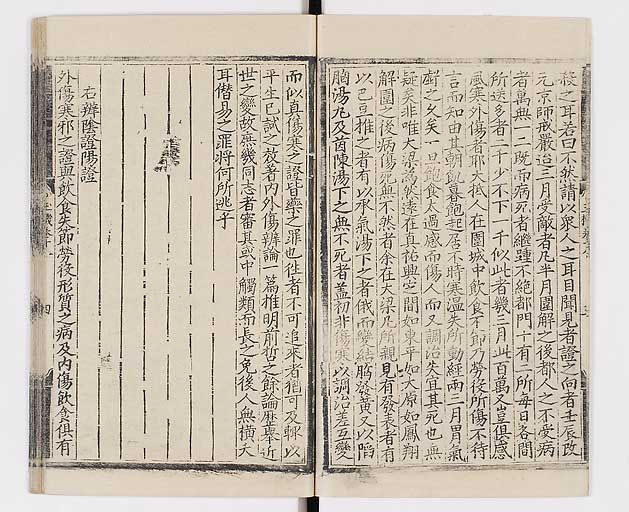 殺之耳若曰不然請以衆人之耳目聞見者證之向者壬辰改
元京師戒嚴迨三月受敵者凡半月圍解之後都人之不受病
者萬無一二既而病死者繼踵不絕都門十有二所每日各間
所送多者二千少不下一千似此者幾三月此百萬又豈俱感
風寒外傷者耶大抵人在圍城中飲食不節乃勞役所傷不待
言而知由其朝飢暮飽起居不時寒温失所動經兩三月胃氣
虧之久矣一旦飽食大過感而傷人而又調治失宜其死也無
疑矣非唯大梁爲然遠在真祐興定間如東平如大原如鳳翔
解圍之後病傷死無不然者余在大梁凡所親見有發表者有
以巴豆推之者有以承氣湯下之者俄而變結胸發黄又以陷
胸湯丸及茵陳湯下之無不死者蓋初非傷寒以調治差互變
而似真傷寒之證皆藥之罪也徃者不可追來者猶可及輒以
平生已試之效著内外傷辨論一篇推明前哲之餘論歷舉近
世之變故庶幾同志者審其或中觸類而長之免後人無橫夭
耳僭易之罪將何所逃乎
右辨陰證陽證
外傷寒邪之證與飲食失節勞役形質之病及内傷飲食俱有
四